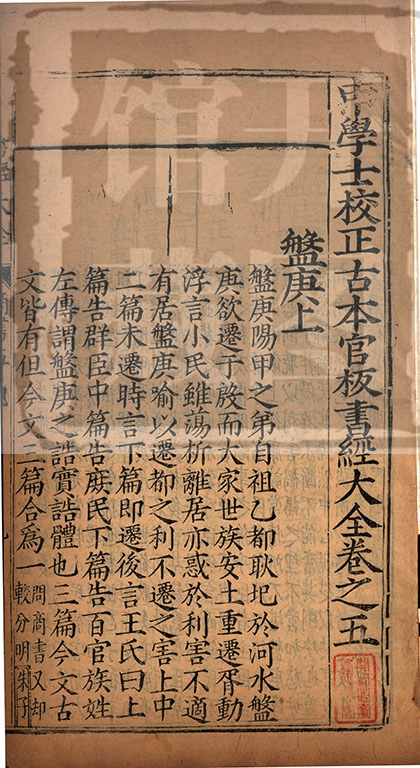 申學士校正古本官板書經大全卷之五
盤庚上
盤庚陽甲之弟自祖乙都耿圯於河水盤
庚欲遷于殷而大家世族安土重遷胥動
浮言小民雖蕩析離居亦惑於利害不適
有居盤庚喻以遷都之利不遷之害上中
二篇未遷時言下篇即遷後言王氏曰上
篇告群臣中篇告庶民下篇告百官族姓
左傳謂盤庚之誥實誥體也三篇今文古
文皆有但今文三篇合為一
問商書又却
較分明朱子